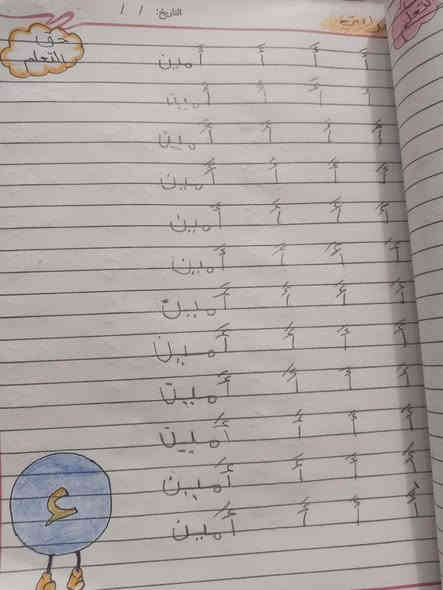 التاريخ: / /
حق
التعلم
أَ أَ أَ أَمين
أَ أَ أَ أَمين
أَ أَ أَ أَمين
أَ أَ أَ أَمين
أَ أَ أَ أَمين
أَ أَ أَ أَمين
أَ أَ أَ أَمين
أَ أَ أَ أَمين
أَ أَ أَ أَمين
أَ أَ أَ أَمين
أَ أَ أَ أَمين
أَ أَ أَ أَمين
ع